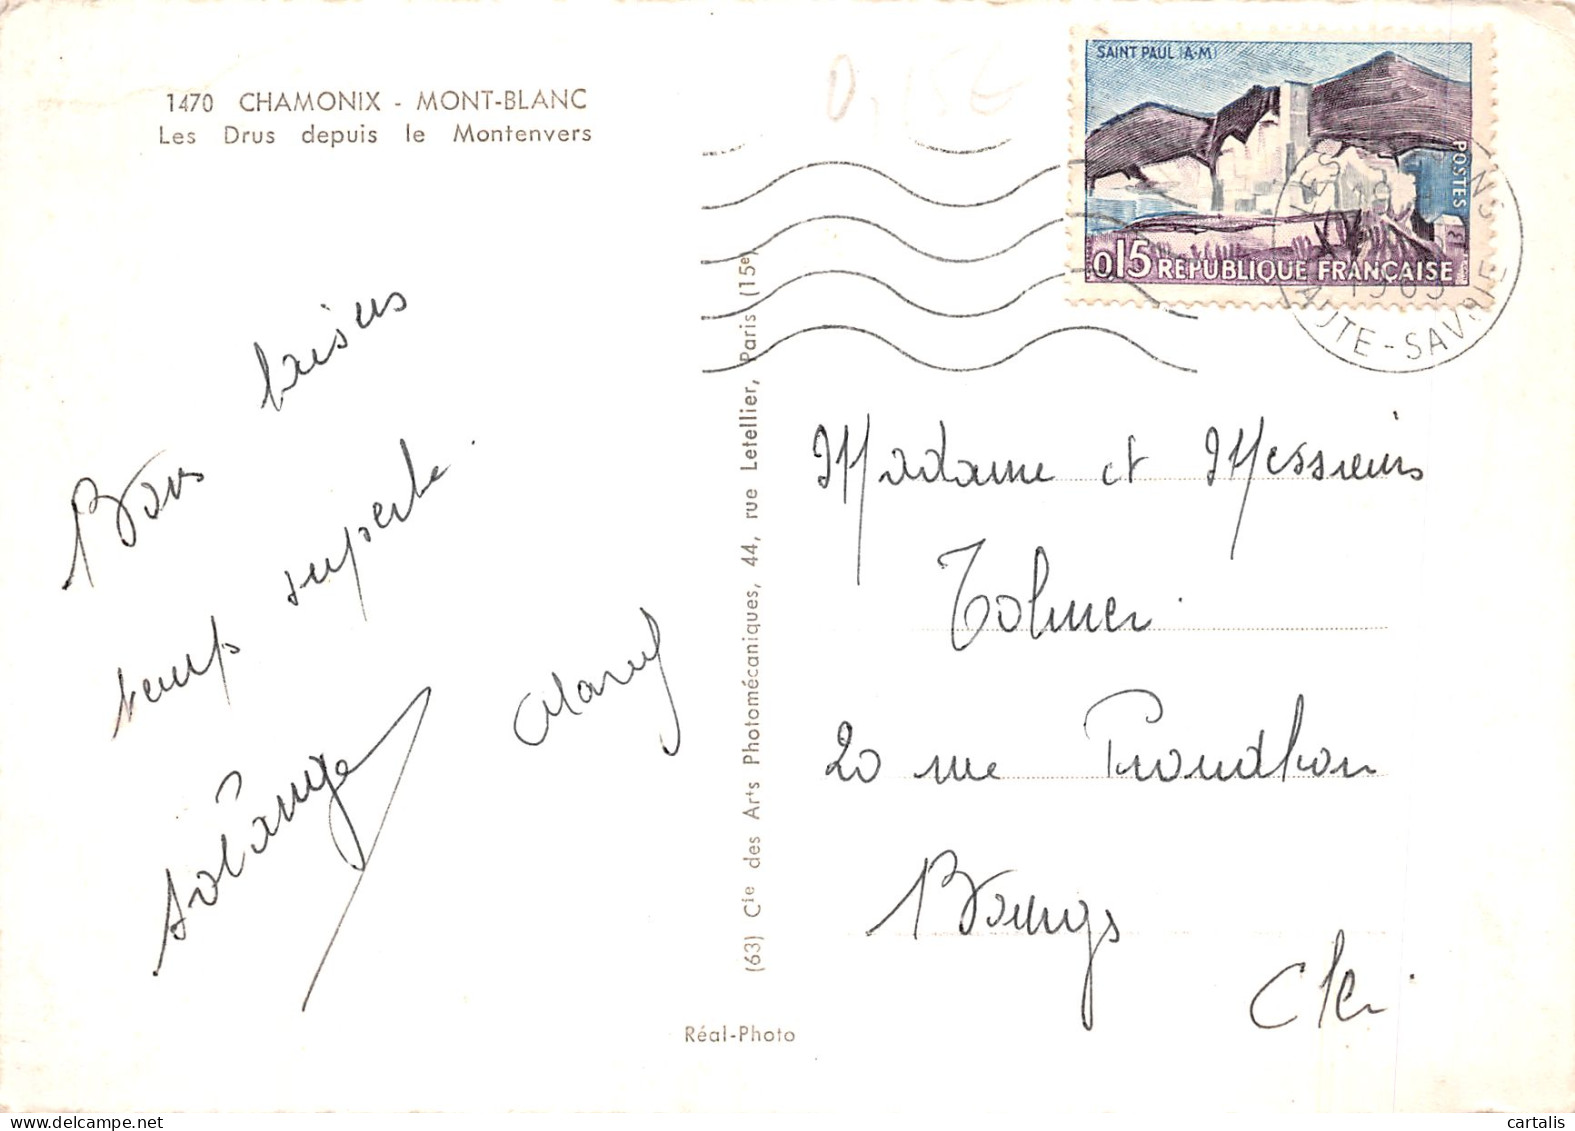 1470 CHAMONIX - MONT-BLANC
Les Drus depuis le Montenvers
0,15€
SAINT PAUL (A-M)
POSTES
0,15 RÉPUBLIQUE FRANÇAISE
LES NS
19
1963
HAUTE-SAVOIE
Bons baisers
temps superbe.
Solange Marcel
(63) Cie des Arts Photomécaniques, 44, rue Letellier, Paris (15e)
Réal-Photo
Madame et Messieurs
Tolmer
20 rue Proudhon
Bourges
Cher
cartalis